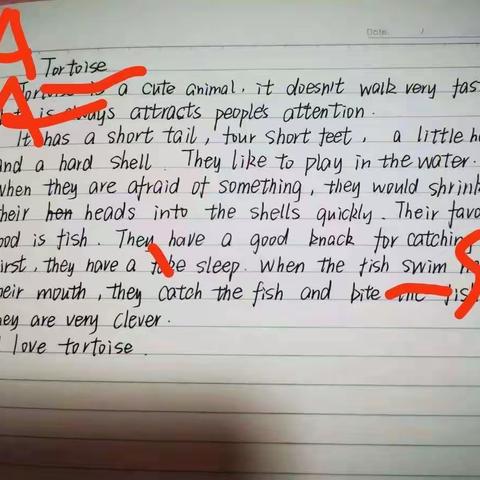 Date. /
A
Tortoise
Tortoise is a cute animal, it doesn't walk very fas
A
is always attracts people's attention.
It has a short tail, four short feet, a little he
and a hard shell. They like to play in the water.
when they are afraid of something, they would shrink
their heads into the shells quickly. Their favo
ood is fish. They have a good knack for catching
irst, they have a fake sleep. When the fish swim
eir mouth, they catch the fish and bite the fish
hey are very clever.
I love tortoise.